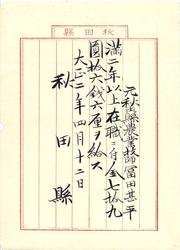 秋田縣
元秋田縣農業技師冨田甚平
滿二年以上在職ニ付金七拾九
圓拾六錢六厘ヲ給ス
大正二年四月十二日
秋田縣